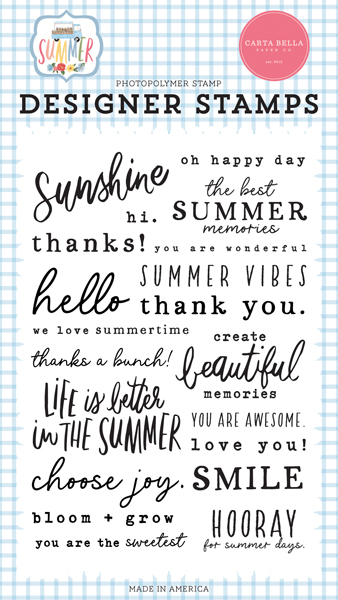 SUMMER
CARTA BELLA
PAPER CO.
PHOTOPOLYMER STAMP
DESIGNER STAMPS
sunshine
oh happy day
hi.
the best
SUMMER
memories
thanks!
you are wonderful
hello
SUMMER VIBES
thank you.
we love summertime
create
beautiful
memories
thanks a bunch!
LIFE is better
in THE SUMMER
YOU ARE AWESOME.
love you!
choose joy.
SMILE
bloom + grow
HOORAY
for summer days.
you are the sweetest
MADE IN AMERICA